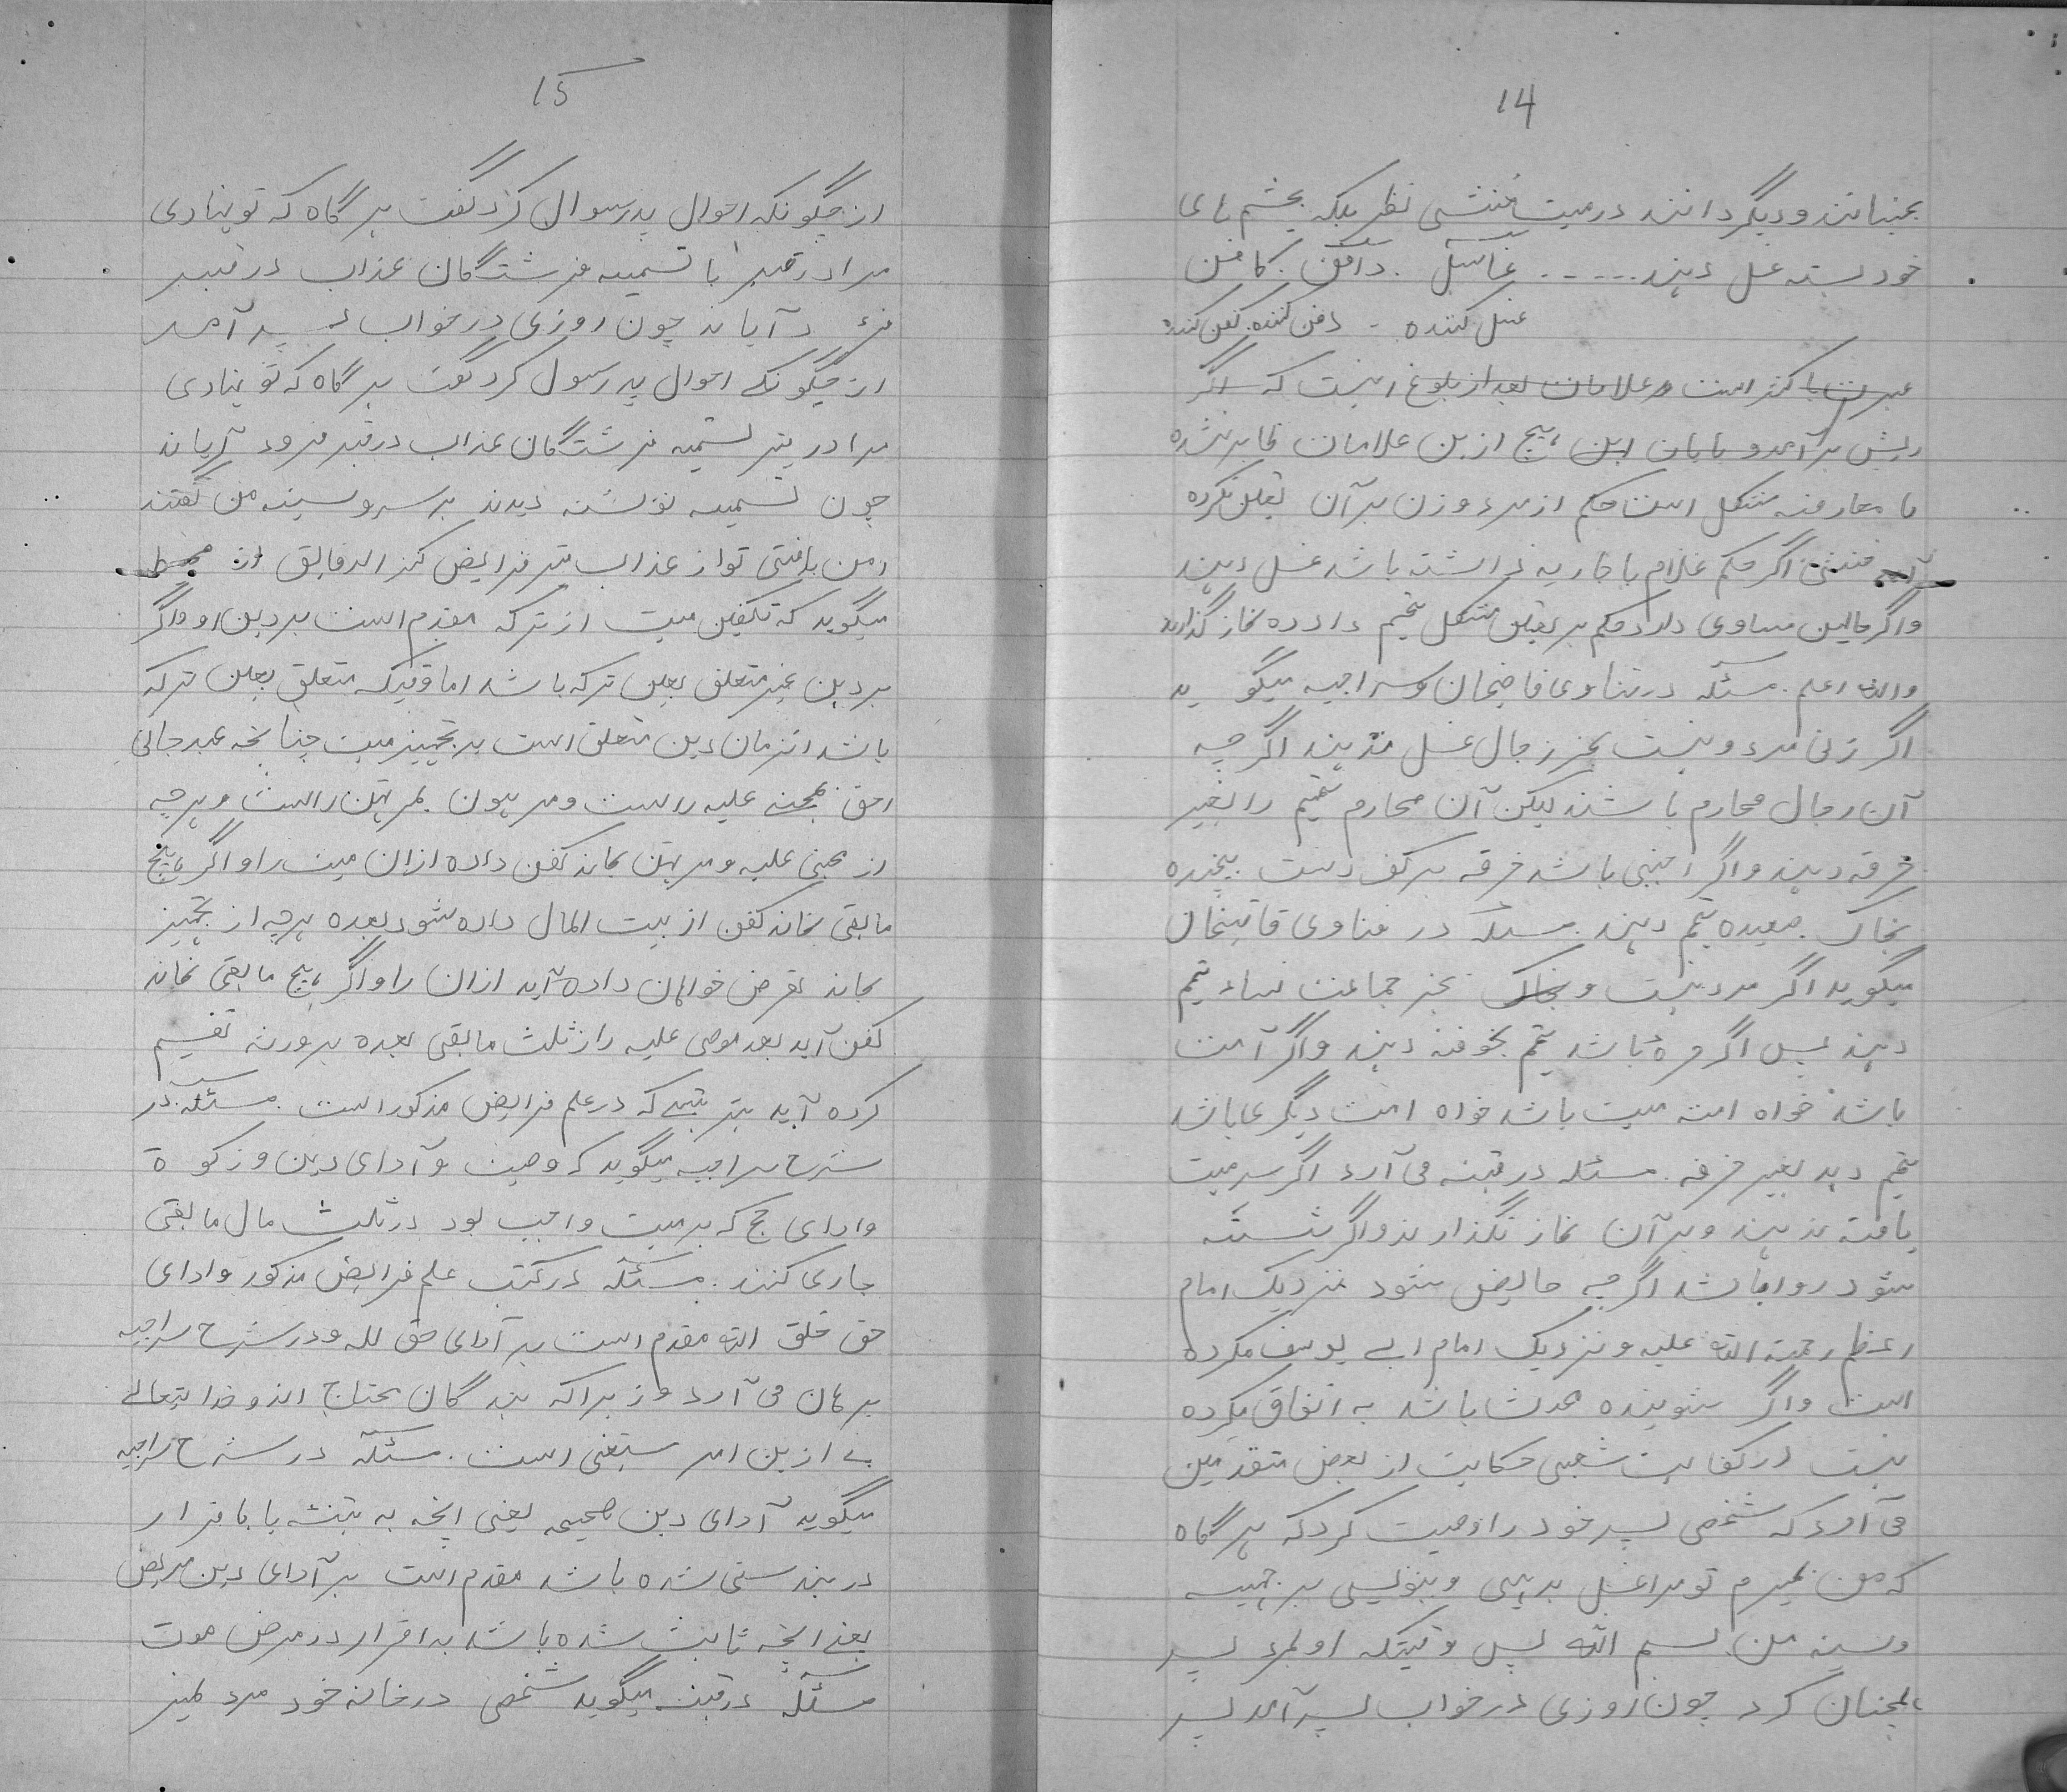 14
بجنبانند و دیگر دانند در میت خنثی نظر بلکه بچشم های
خود بسته غسل دهند ..... غاسل . دافن . کافن
غسل کننده - دفن کننده . کفن کننده
است و علامات بعد از بلوغ اینست که اگر
ریش برآمد و یا هیچ ازین علامات ظاهر نشده
یا معارضه مشکل است حکم از مرد و زن بر آن یقین نکرده
آید خنثی اگر حکم غلام یا جاریه نداشته باشد غسل دهند
و اگر حالین مساوی دارد حکم بر یقین مشکل تیمم داده نماز گذارند
والله اعلم . مسئله در فتاوی قاضیخان و سراجیه میگوید
اگر زنی مرد و نیست بجز رجال غسل ندهند اگر چه
آن رجال محارم باشند لیکن آن محارم تیمم را بغیر
خرقه دهند و اگر اجنبی باشد خرقه بر کف دست پیچیده
بخاک تیمم دهند . مسئله در فتاوی قاضیخان
میگوید اگر مرد نیست و بجز جماعت نساء تیمم
دهند پس اگر حره باشد تیمم بخرقه دهند و اگر امت
باشد خواه امته میت باشد خواه امت دیگری باشد
تیمم دهد بغیر خرقه . مسئله در قنیه می آرد اگر سر میت
یافته ندهند و بر آن نماز نگذارند و اگر شسته
شود روا باشد اگر چه حایض شود نزدیک امام
اعظم رحمة الله علیه و نزدیک امام ابی یوسف مکروه
است و اگر شوینده محدث باشد به اتفاق مکروه
نیست در کفایت شعبی حکایت از بعض متقدمین
می آرد که شخصی پسر خود را وصیت کرد که هر گاه
که من بمیرم تو مرا غسل بدهی و بنویسی بر جبهه
و سینه من بسم الله پس وقتیکه او بمرد پسر
همچنان کرد چون روزی در خواب پسر آمد پسر
15
از چگونکه احوال پدر سوال کرد گفت هر گاه که تو نهادی
مرا در قبر با تسمیه فرشتگان عذاب در قبر
چون روزی در خواب پسر آمد
از چگونگی احوال پدر سول کرد گفت هر گاه که تو نهادی
مرا در قبر تسمیه فرشتگان عذاب در قبر فرود آیاند
چون تسمیه نوشته دیدند بر سر و سینه من گفتند
امن یافتی تو از عذاب قبر فرایض کنز الدقایق از محیط
میگوید که تکفین میت از ترکه مقدم است بر دین او و اگر
بر دین غیر متعلق بعین ترکه باشد اما وقتیکه متعلق بعین ترکه
باشد انزمان دین متعلق است بر تجهیز میت چنانچه عبد جانی
احق مجنی علیه راست و مرهون بمرتهن راست و هر چه
از مجنی علیه و مرتهن بماند کفن داده ازان میت را و اگر هیچ
مابقی نماند کفن از بیت المال داده شود بعده هر چه از تجهیز
بماند بقرض خواهان داده آید ازان را و اگر هیچ مابقی نماند
کفن آید بعد موصی علیه را ز ثلث مابقی بعده بر ورثه تقسیم
کرده آید بترتیبی که در علم فرایض مذکور است . مسئله . در
شرح سراجیه میگوید که وصیت و آدای دین و زکوة
و ادای حج که بر میت واجب بود در ثلث مال مابقی
جاری کنند . مسئله در کتب علم فرایض مذکور و ادای
حق خلق الله مقدم است بر آدای حق لله و در شرح سراجیه
برهان می آرد و زیرا که بندگان محتاج اند و خدایتعالی
بے ازین امر ستغنی است . مسئله در شرح سراجیه
میگوید آدای دین صحیحه یعنی انچه به بینه یا باقرار
در تندرستی شده باشد مقدم است بر آدای دین مریض
بعد انچه ثابت شده باشد به اقرار در مرض موت
مسئله در قنیه میگوید شخصی در خانه خود مرد بغیر